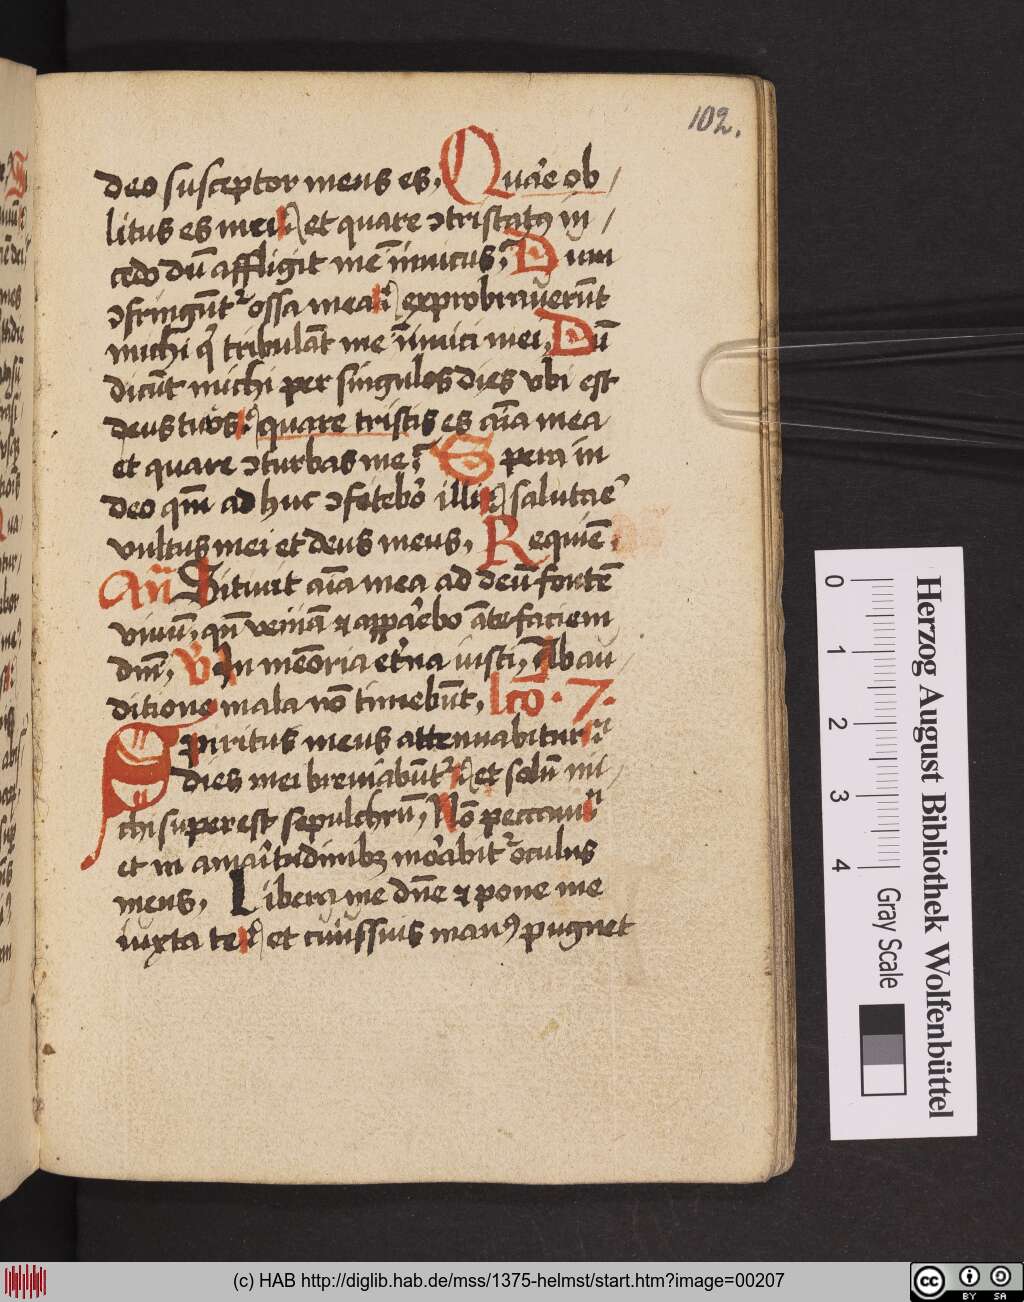 102.
deo susceptor meus es, Quare ob/
litus es mei et quare ↄtristatꝯ in/
cedo dū affligit me īnimicus, Dum
ↄfringūt᷑ ossa mea exprobraverūt
michi qͥ tribulāt me īnimici mei, Dū
dicūt michi per singulos dies vbi est
deus tuus quare tristis es aīa mea
et quare ↄturbas me Spera in
deo qm̄ ad huc ↄfitebor illi salutare
vultus mei et deus meus, Requiē,
An̄ Sitivit aīa mea ad deū fontē
vivū, qn̄ veniā ⁊ apparebo āte faciem
dm̄, V In memoria et'na iusti, Ab au/
ditione mala nō timebūt, lcō · 7 ·
Spiritus meus attenuabitur
dies mei breviabūt᷑ et solū mi/
chi superest sepulchrū, Nō peccavi
et in amaritudinibꝫ morabit᷑ oculus
meus, Libera me dn̄e ⁊ pone me
iuxta te et cuiusvis manꝯ pugnet
0 1 2 3 4
Gray Scale
Herzog August Bibliothek Wolfenbüttel
(c) HAB http://diglib.hab.de/mss/1375-helmst/start.htm?image=00207
cc BY SA